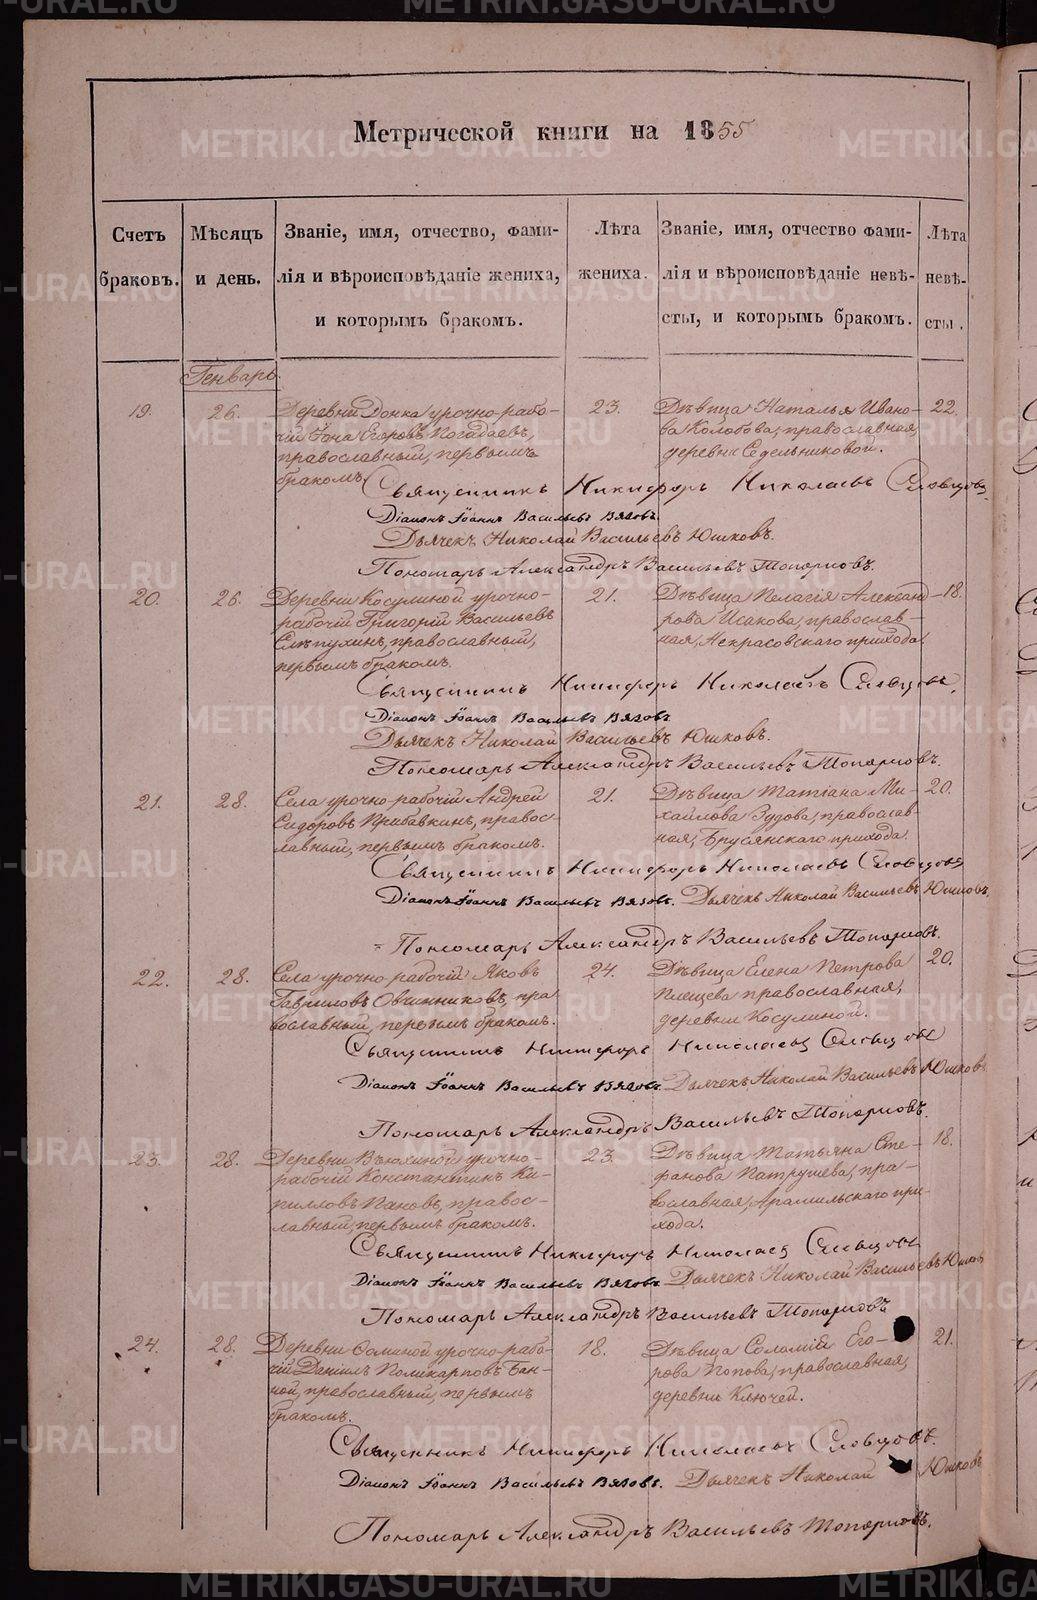 Метрической книги на 1855
Счетъ браковъ.
Мѣсяцъ и день.
Званіе, имя, отчество, фамилія и вѣроисповѣданіе жениха, и которымъ бракомъ.
Лѣта жениха.
Званіе, имя, отчество фамилія и вѣроисповѣданіе невѣсты, и которымъ бракомъ.
Лѣта невѣсты.
Генварь
19. 26.
Деревни Донка урочно-рабо-
чій Іона Егоровъ Погадаевъ,
православный, первымъ
бракомъ
23.
Дѣвица Наталья Ивано-
ва Колобова, православная,
деревни Седельниковой.
22.
Священникъ Никифоръ Николаевъ Словцовъ.
Діаконъ Іоаннъ Васильевъ Вязовъ.
Дьячекъ Николай Васильевъ Юшковъ.
Пономарь Александръ Васильевъ Топорковъ.
20. 26.
Деревни Косулиной урочно-
рабочій Григорій Васильевъ
Слѣпухинъ, православный,
первымъ бракомъ.
21.
Дѣвица Пелагія Александ-
рова Исакова, православ-
ная, Некрасовскаго прихода.
18.
Священникъ Никифоръ Николаевъ Словцовъ.
Діаконъ Іоаннъ Васильевъ Вязовъ
Дьячекъ Николай Васильевъ Юшковъ.
Пономарь Александръ Васильевъ Топорковъ.
21. 28.
Села урочно-рабочій Андрей
Сидоровъ Прибавкинъ, правос-
лавный, первымъ бракомъ.
21.
Дѣвица Татіана Ми-
хайлова Зудова, православ-
ная, Брусянскаго прихода.
20.
Священникъ Никифоръ Николаевъ Словцовъ
Діаконъ Іоаннъ Васильевъ Вязовъ. Дьячекъ Николай Васильевъ Юшковъ.
Пономарь Александръ Васильевъ Топорковъ.
22. 28.
Села урочно-рабочій Яковъ
Гавриловъ Овчинниковъ, пра-
вославный, первымъ бракомъ.
24.
Дѣвица Елена Петрова
Плещева православная,
деревни Косулиной.
20.
Священникъ Никифоръ Николаевъ Словцовъ
Діаконъ Іоаннъ Васильевъ Вязовъ. Дьячекъ Николай Васильевъ Юшковъ
Пономарь Александръ Васильевъ Топорковъ.
23. 28.
Деревни Вьюхиной урочно-
рабочій Константинъ Ки-
рилловъ Пановъ, правос-
лавный, первымъ бракомъ.
23.
Дѣвица Татьяна Сте-
фанова Патрушева, пра-
вославная, Арамильскаго при-
хода.
18.
Священникъ Никифоръ Николаевъ Словцовъ
Діаконъ Іоаннъ Васильевъ Вязовъ Дьячекъ Николай Васильевъ Юшковъ
Пономарь Александръ Васильевъ Топорковъ
24. 28.
Деревни урочно-рабо-
чій Даніилъ Поликарповъ Бан-
ной, православный, первымъ
бракомъ.
18.
Дѣвица Соломія Его-
рова Попова, православная,
деревни Ключей.
21.
Священникъ Никифоръ Николаевъ Словцовъ.
Діаконъ Іоаннъ Васильевъ Вязовъ. Дьячекъ Николай Юшковъ
Пономарь Александръ Васильевъ Топорковъ.
METRIKI.GASU-URAL.RU